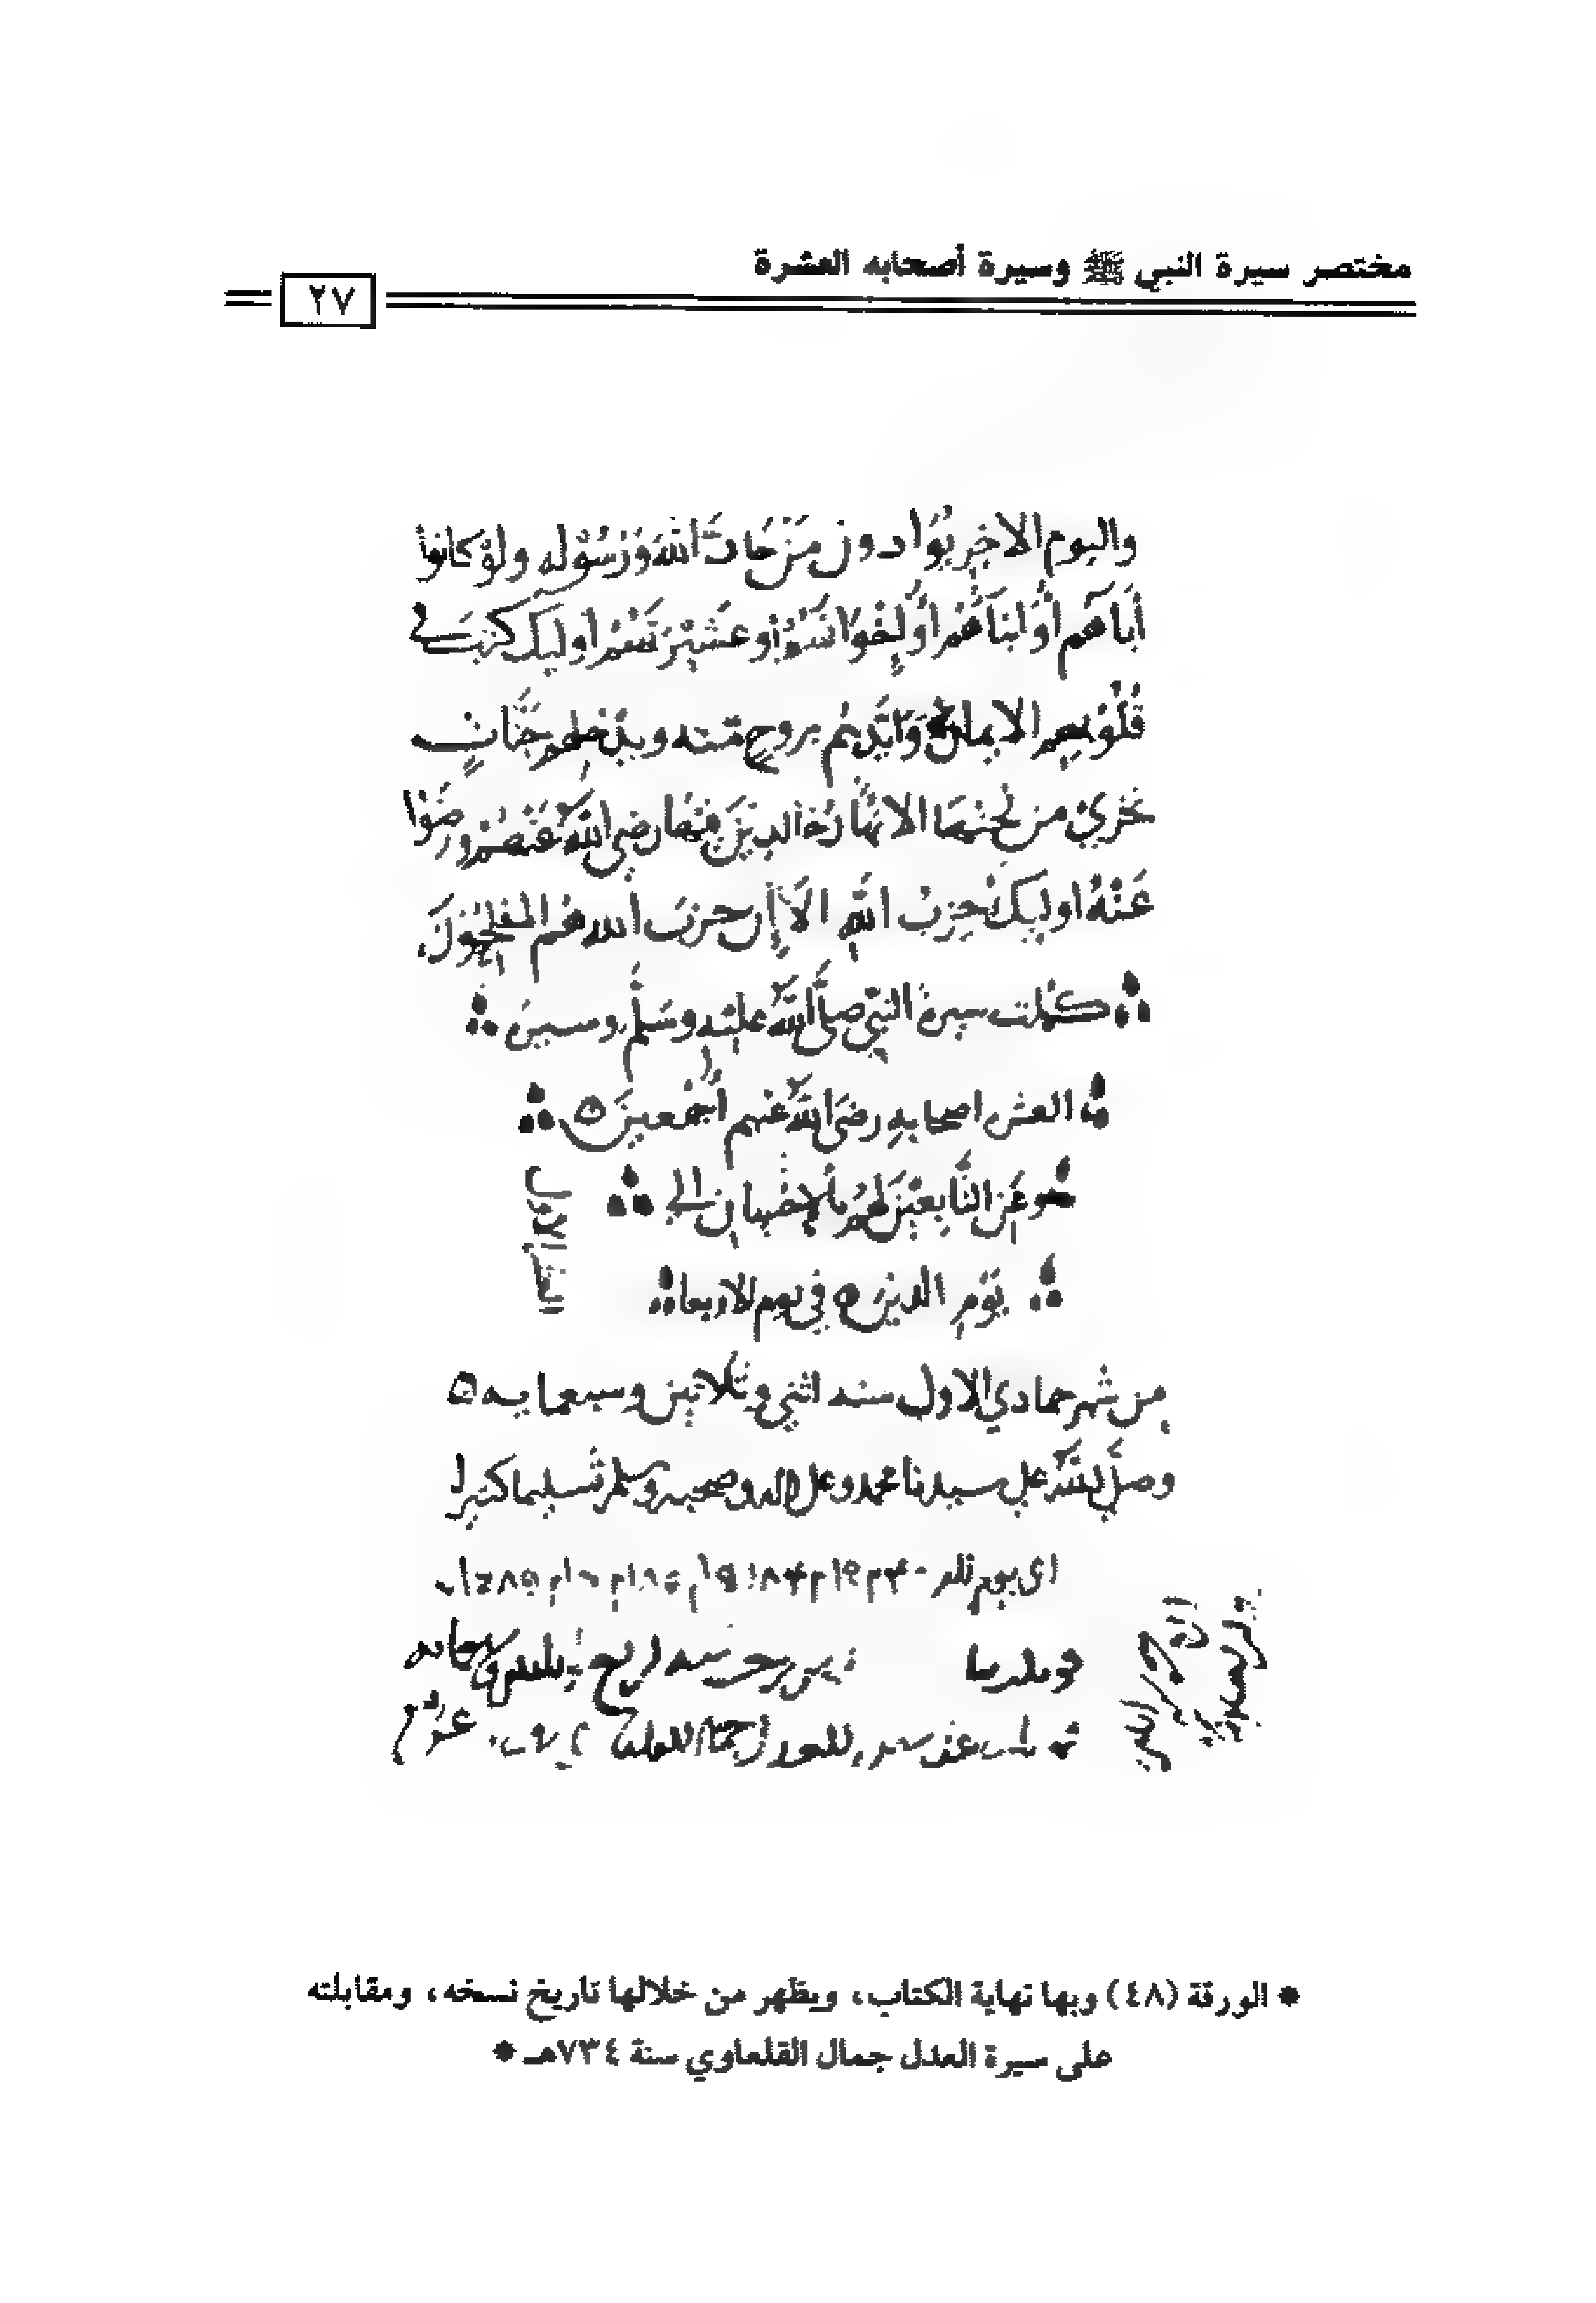 مختصر سيرة النبي ﷺ وسيرة أصحابه العشرة
٢٧
واليوم الاخِرِ يُوَادون مَنْ حَادَّ اللهَ وَرَسُوْله ولَوْ كانوا
أَبَاآهم أَوْ ابنَآهُم أَوْ إِخْوَانَهُمْ أو عَشِيْرَتَهُم اوليك كتبَ في
قُلُوْبِهِم الايمان وَايَّدَهُم بروحٍ مّنه ويدْخِلهم جَنَّاتٍ
تَجْرِيْ من تحتِهَا الانْهَارُ خالِدِيْنَ فِيْهَا رضِي اللهُ عَنْهُمْ ورضُوْا
عَنْهُ اوليِكَ حِزبُ اللهِ الَا إِن حزبَ الله هُم المفلِحُوْنَ
كمُلت سيرة النبيّ صلَّى اللهُ عليْهِ وسَلَّم وسيرة
العشرة اصحابِهِ رضيَ اللهُ عنهم أَجْمعينَ ه
وعَنِ التَّابِعيْنَ لَهُمْ بالإِحْسَانِ إلى
يَوْمِ الدين ه في يوم الاربعا
العشر الاول
من شهر جمادي الاول سنه اثنى وثلاثين وسبعمايه ه
وصلَّى اللهُ على سيدنا محمد وعلى اله وصحبه وسلم تسليما كثيرا
* الورقة (٤٨) وبها نهاية الكتاب، ويظهر من خلالها تاريخ نسخه، ومقابلته
على سيرة العدل جمال القلعاوي سنة ٧٣٤هـ *